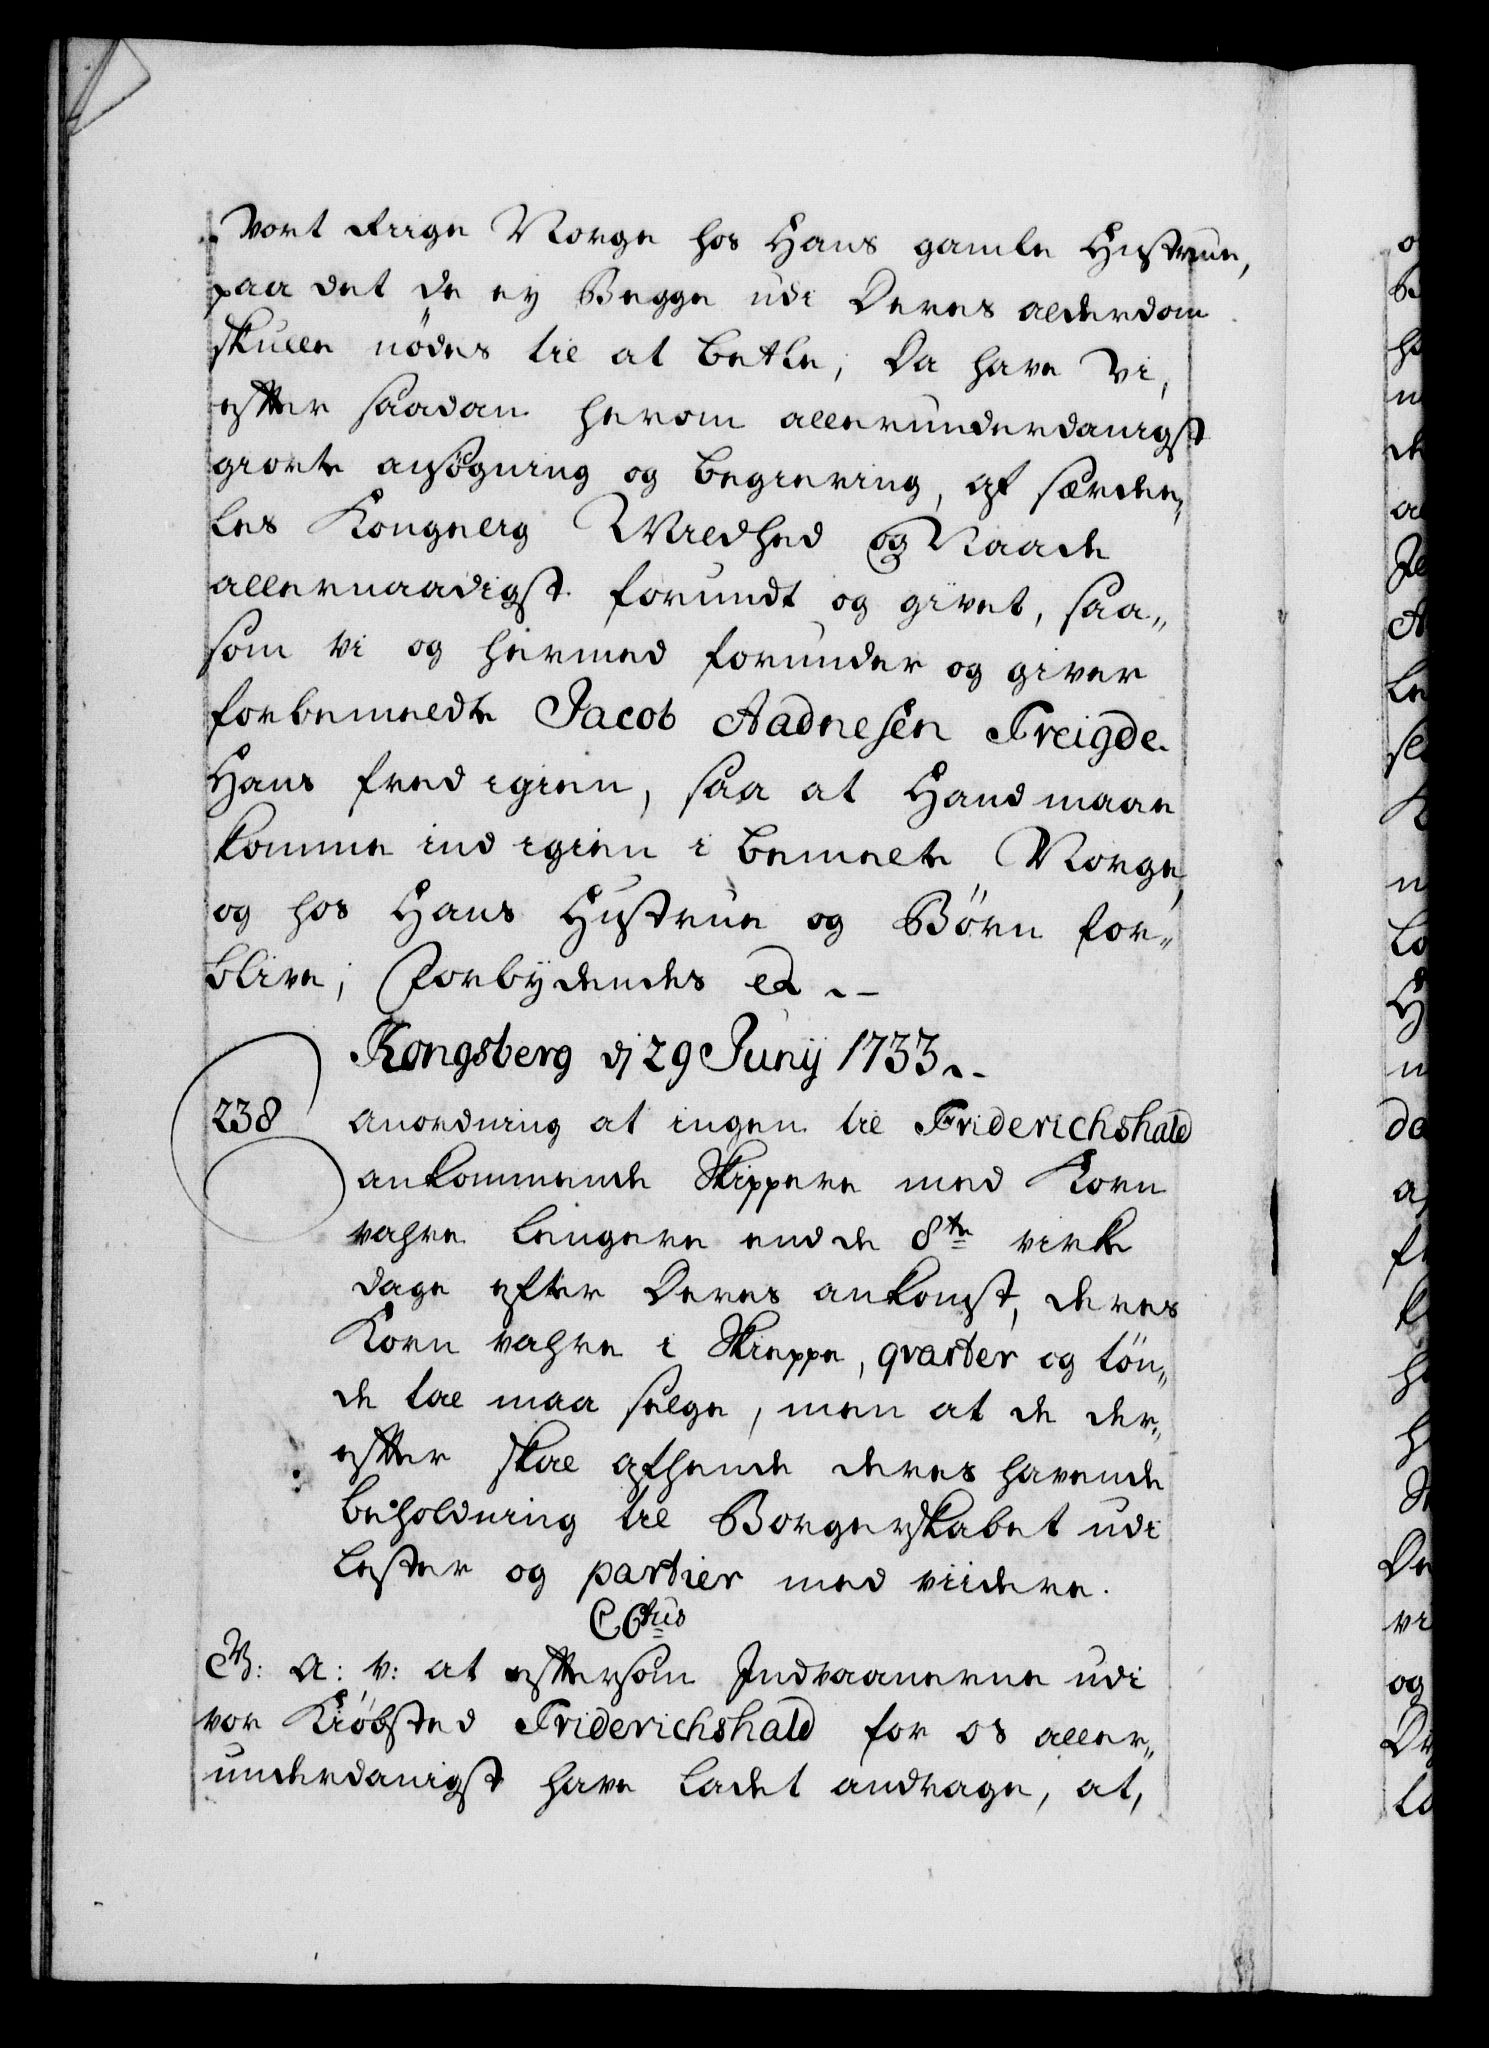 Vort Riige Norge hos Hans gamle Hustrue,
paa det de ey Begge udi Deres alderdom
skulle nødes til at betle; Da have Vi,
efter saadan herom allerunderdanigst
giorte ansøgning og begiering, af særde„
les Kongelig Mildhed og Naade
allernaadigst forundt og givet, saa„
som vi og hermed forunder og giver
forbemeldte Jacob Aadnesen Freigde
Hans fred igien, saa at Hand maae
komme ind igien i bemelte Norge,
og hos Hans Hustrue og Børn for„
blive; Forbydendes etc.
Kongsberg dj 29 Junij 1733.
238 Anordning at ingen til Friderichshald
ankommende Skippere med Korn
vahre lengere end de 8te virke
dage efter Deres ankomst, deres
Korn vahre i Skieppe, qvarter og tøn„
de tal maa selge, men at de der„
efter skal afhende deres havende
beholdning til Borgerskabet udi
lester og partier med viidere.
C 6tus
G: A: V: at eftersom Indvaanerne udi
vor Kiøbsted Friderichshald for os aller„
underdanigst have ladet andrage, at,